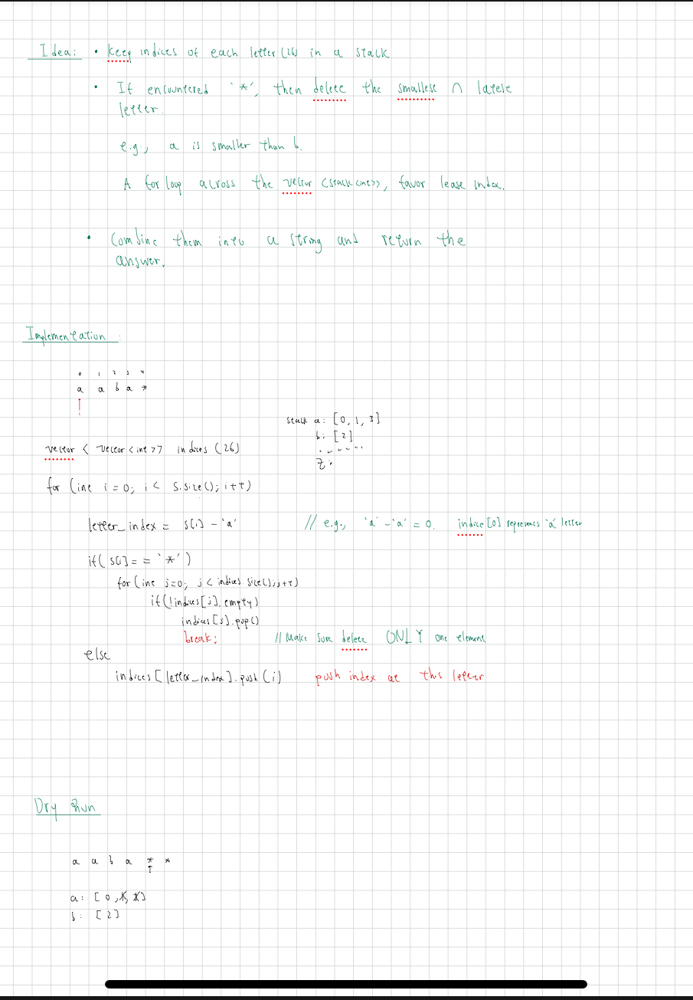 Idea: • Keep indices of each letter (26) in a stack
• If encountered '*', then delete the smallest ∩ latest
letter.
e.g., a is smaller than b.
A for loop across the vector <stack<int>>, favor least index.
• Combine them into a string and return the
answer.
Implementation:
0 1 2 3 4
a a b a *
stack a: [0, 1, 3]
b: [2]
z:
vector < vector <int>> indices (26)
for (int i = 0; i < s.size(); i++)
letter_index = s[i] - 'a' // e.g., 'a' - 'a' = 0. indice[0] represents 'a' letter
if (s[i] == '*')
for (int j=0; j < indices size(); j++)
if (!indices[j].empty)
indices[j].pop()
break; // Make sure delete ONLY one element
else
indices[letter_index].push(i) push index at this letter
Dry Run
a a b a * *
a: [0, 1, 3]
b: [2]